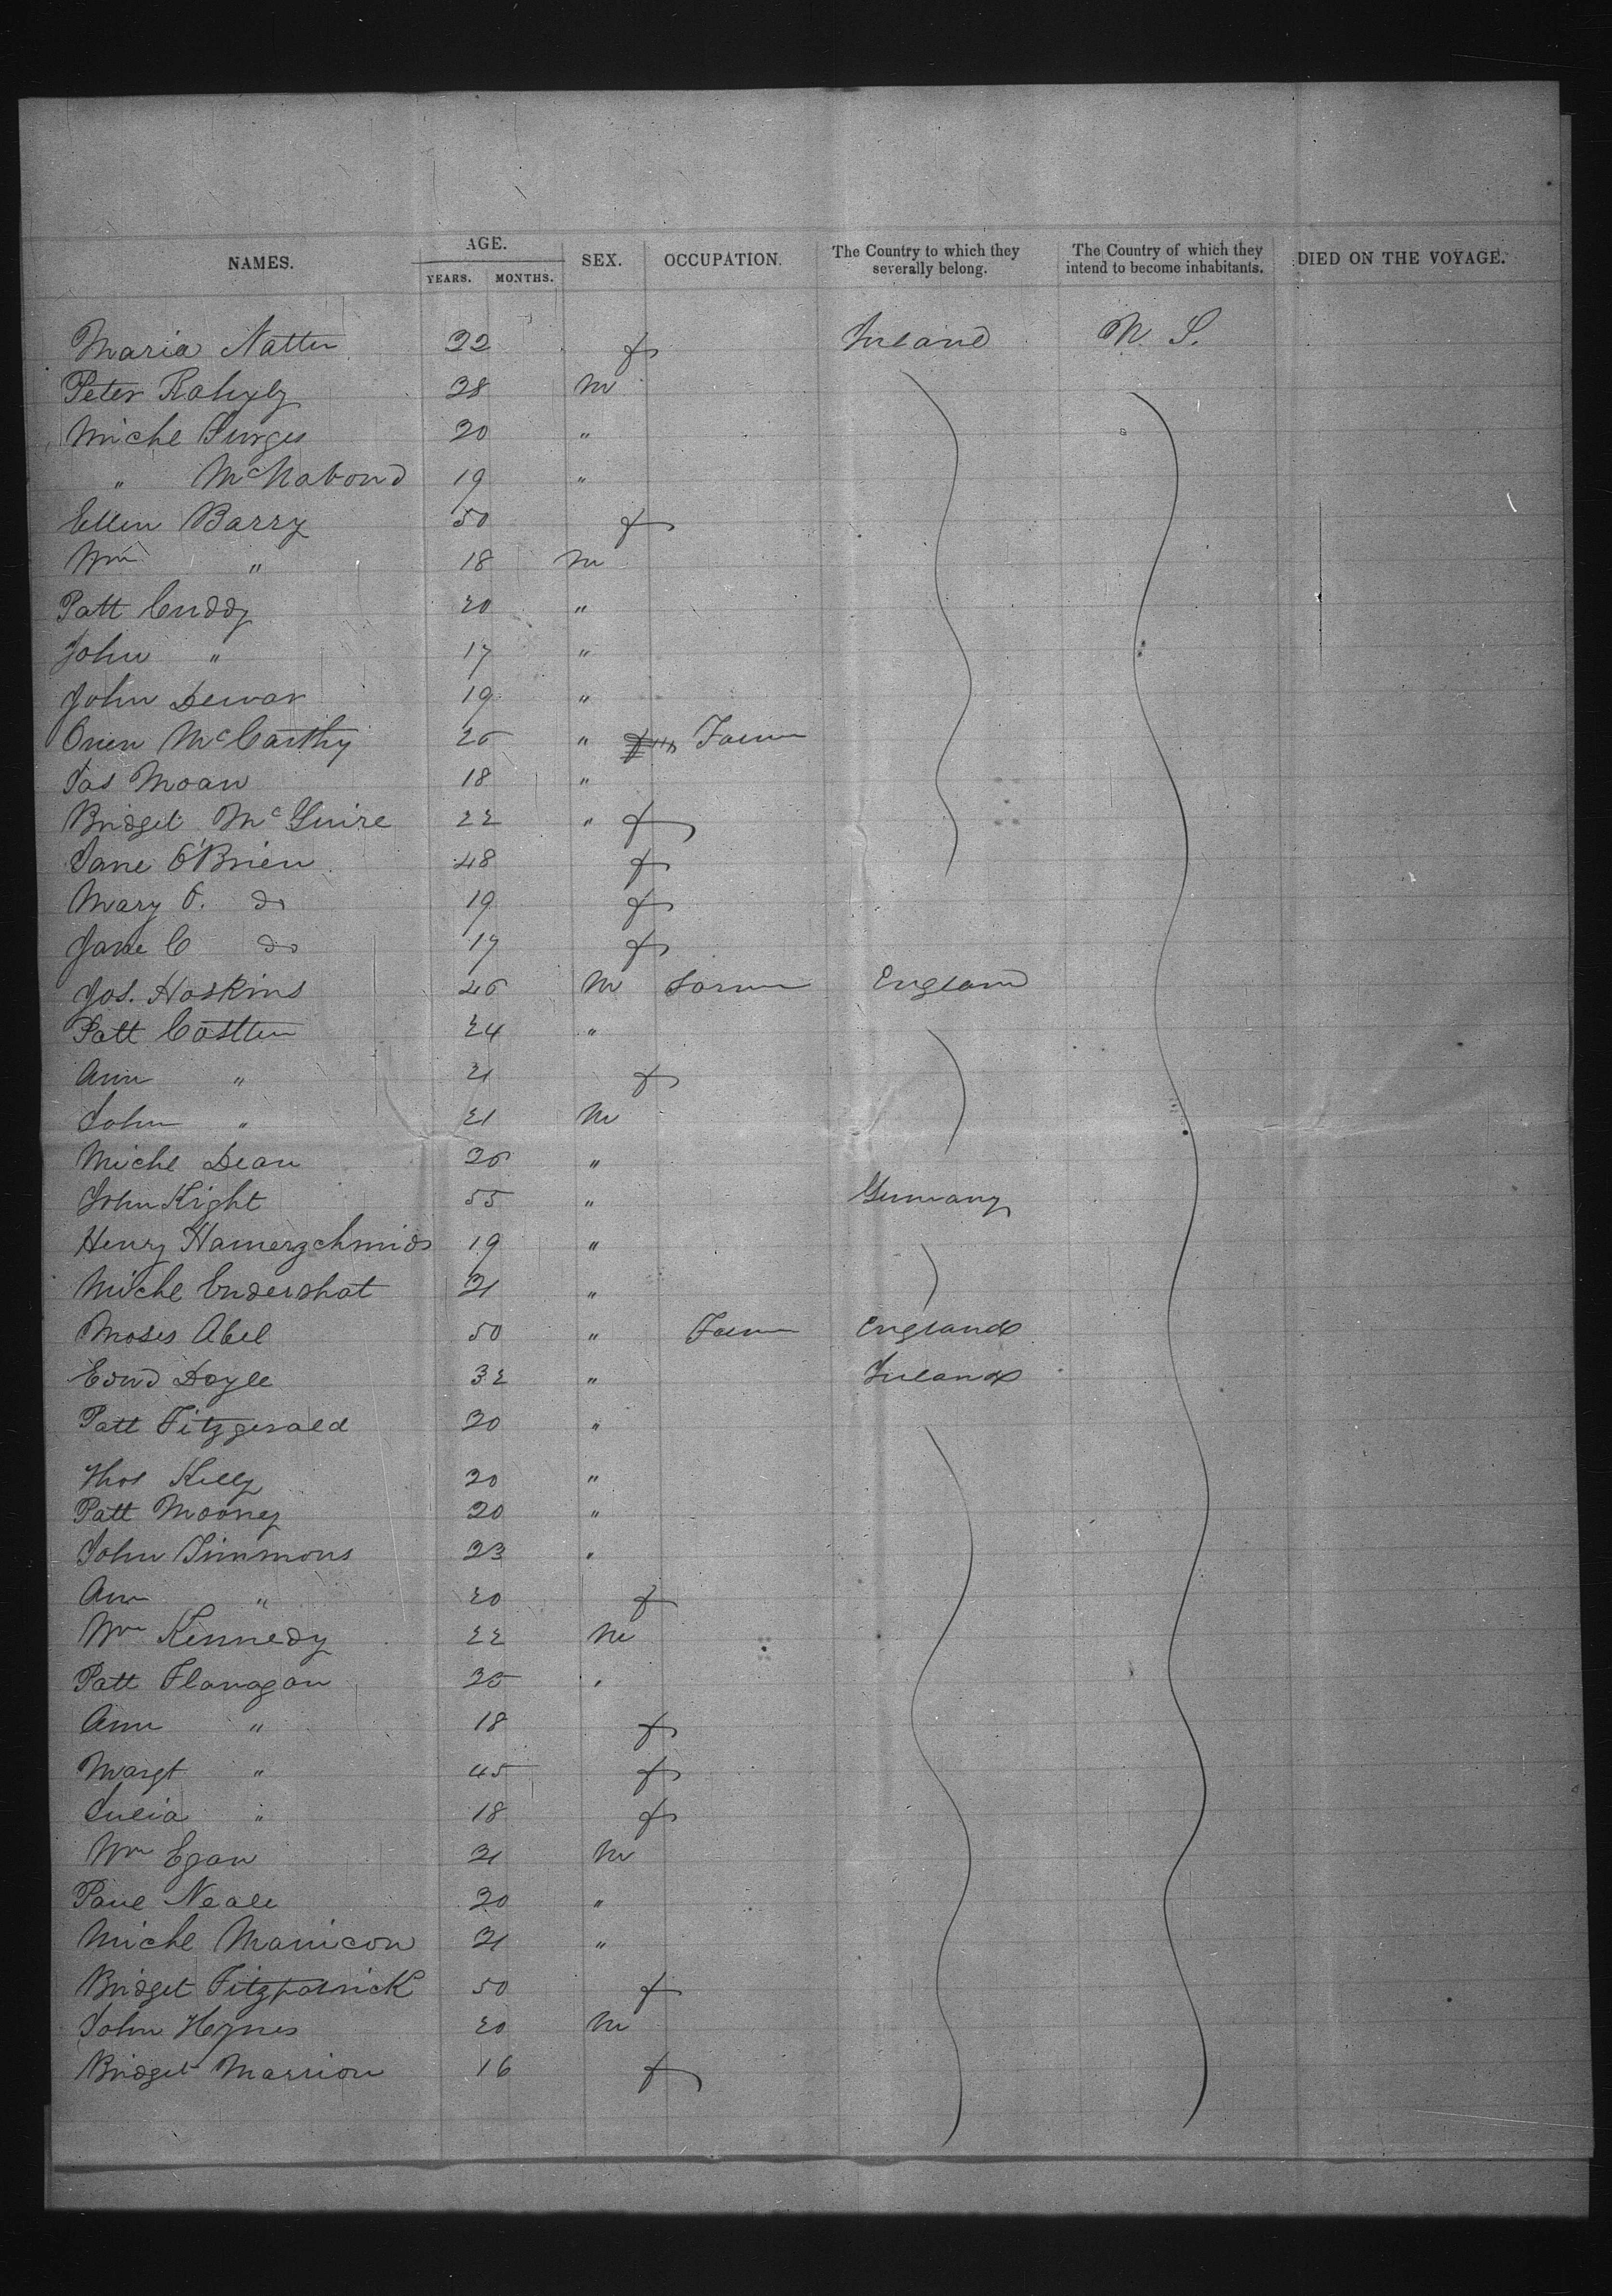 NAMES. AGE. YEARS. MONTHS. SEX. OCCUPATION. The Country to which they severally belong. The Country of which they intend to become inhabitants. DIED ON THE VOYAGE.
Maria Natten 22 f Ireland U. S.
Peter 28 m
Michl 20 "
" 19 "
Ellen Barry 50 f
Wm " 18 m
Patt Cuddy 20 "
John " 17 "
John Dewar 19 "
Owen McCarthy 25 " Farmer
Jas Moan 18 "
Bridget McGuire 22 " f
Jane O'Brien 48 f
Mary O. do 19 f
Jane C do 17 f
Jos. Hoskins 45 m Farmer England
Patt Costten 24 "
Ann " 21 f
John " 21 m
Michl Dean 25 "
John Kight 55 " Germany
Henry Hamerzchmids 19 "
Michl Endershot 21 "
Moses Abel 50 " Farmer England
Edwd Doyle 32 " Ireland
Patt Fitzgerald 20 "
Thos Kelly 20 "
Patt Mooney 20 "
John Simmons 23 "
Ann " 20 f
Wm Kennedy 22 m
Patt Flanagan 25 "
Ann " 18 f
Margt " 45 f
Julia " 18 f
Wm Egan 21 m
Paul Neale 20 "
Michl Manicon 21 "
Bridget Fitzpatrick 50 f
John Hynes 20 m
Bridget Marrion 16 f